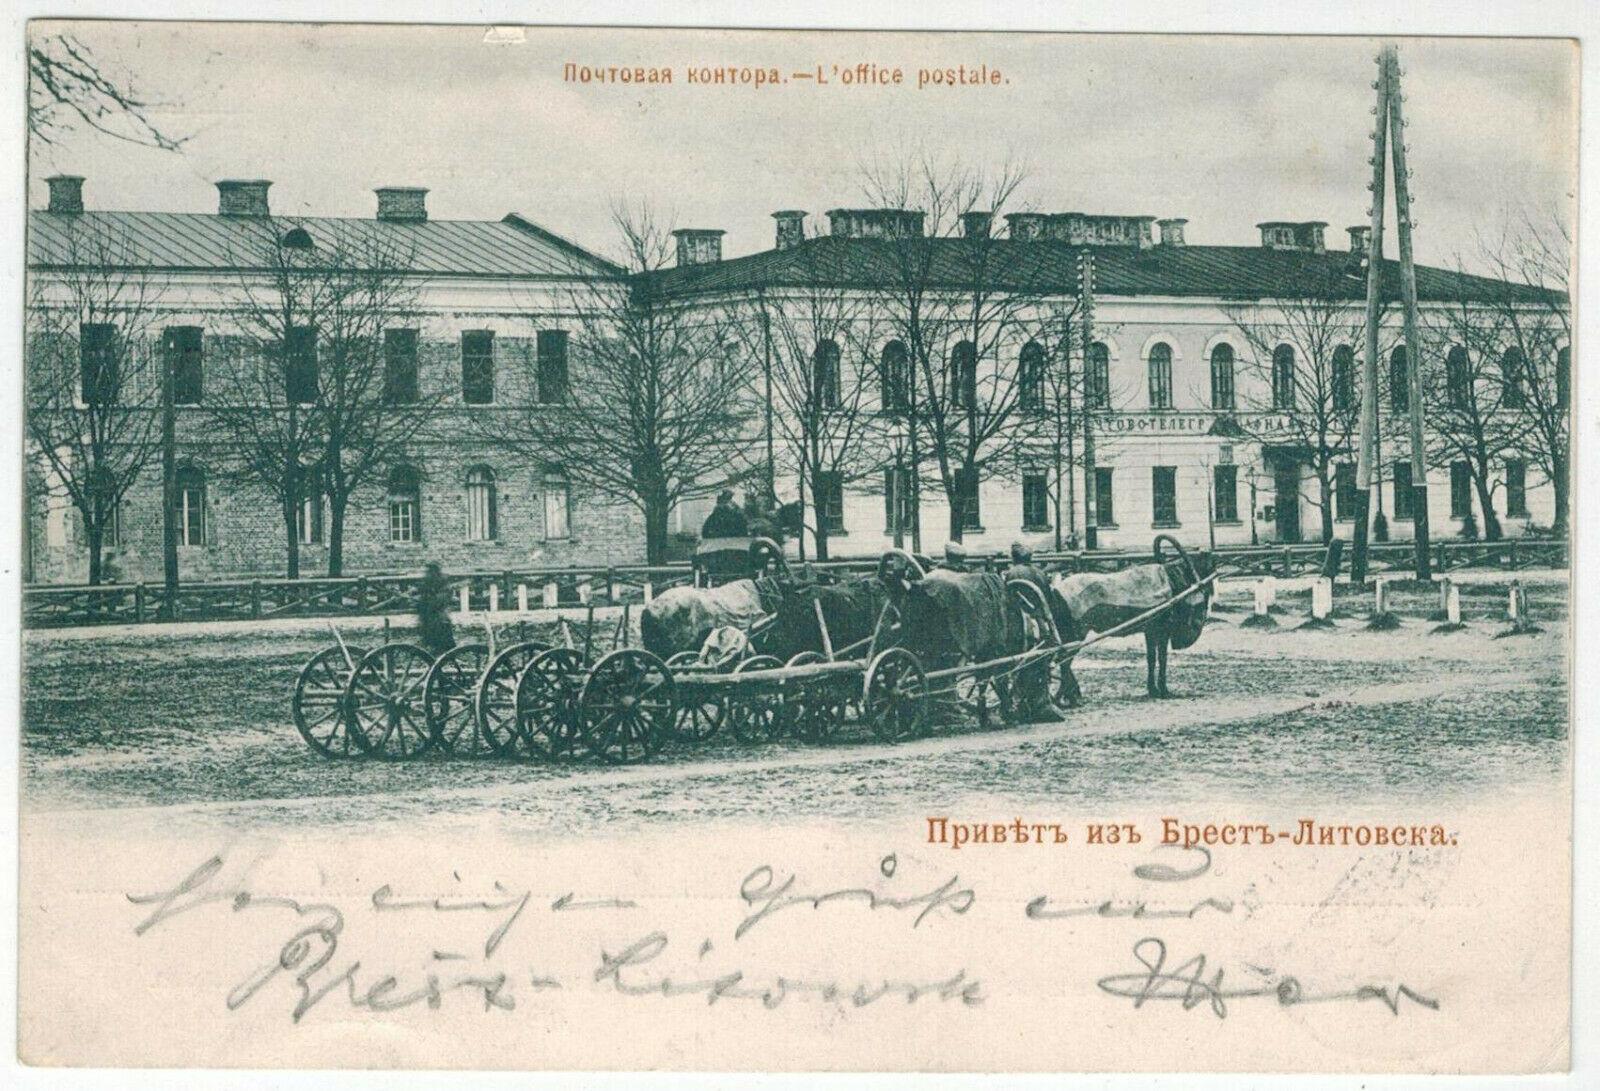 Почтовая контора.—L'office postale.
ПОЧТОВО-ТЕЛЕГРАФНАЯ
Привѣтъ изъ Брестъ-Литовска.
Gruß aus
Brest-Litowsk